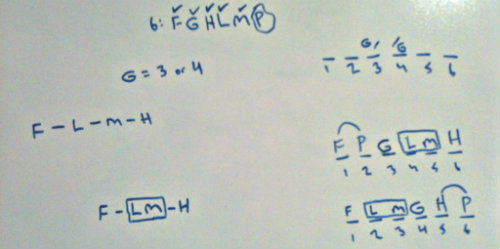 6: F G H L M P
G = 3 or 4
G/ /G
1 2 3 4 5 6
F - L - M - H
F P G L M H
1 2 3 4 5 6
F - LM - H
F L M G H P
1 2 3 4 5 6